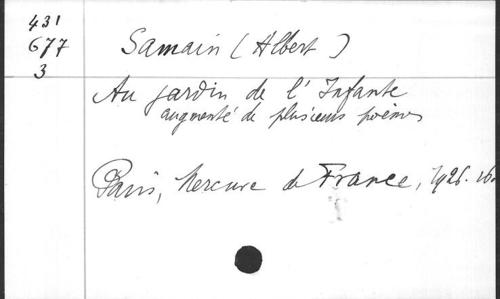 431
677
3
Samain (Albert)
Au jardin de l'Infante
augmenté de plusieurs poèmes
Paris, Mercure de France, 1926. 16o